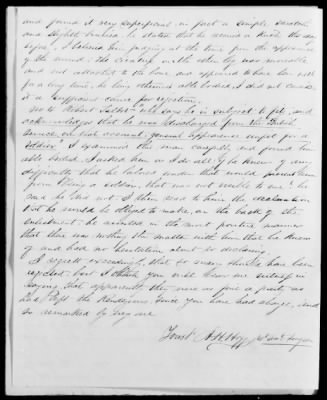 and found it very superficial, in fact a simple scratch
and slightly he states that he received a kick the day
before, I believed him judging at the time from the appearance
of the wound. The cicatrix on the other leg was moveable
and not attached to the bone, and appeared to have been well
for a long time, he being otherwise able bodied I did not consider
it a sufficient cause for rejection.
No 2. Robert "he says he is subject to fits, and
acknowledges that he was discharged from the British
Service on that account. general appearance unfit for a
soldier" I examined this man carefully and found him
able bodied. I asked him as I do all, if he knew of any
difficulty that he labored under that would prevent him
from being a soldier, that was not visible to me? he
said he did not. I then read to him the declaration
that he would be obliged to make, on the back of the
enlistment. he answered in the most positive manner
that there was nothing the matter with him that he knew
of and had no hesitation about so declaring.
I regret exceedingly that so many should have been
rejected, but I think you will bear me witness in
saying that apparently there were as fine a party as
has left the Rendezvous since you have had charge, and
so remarked by every one
Yours